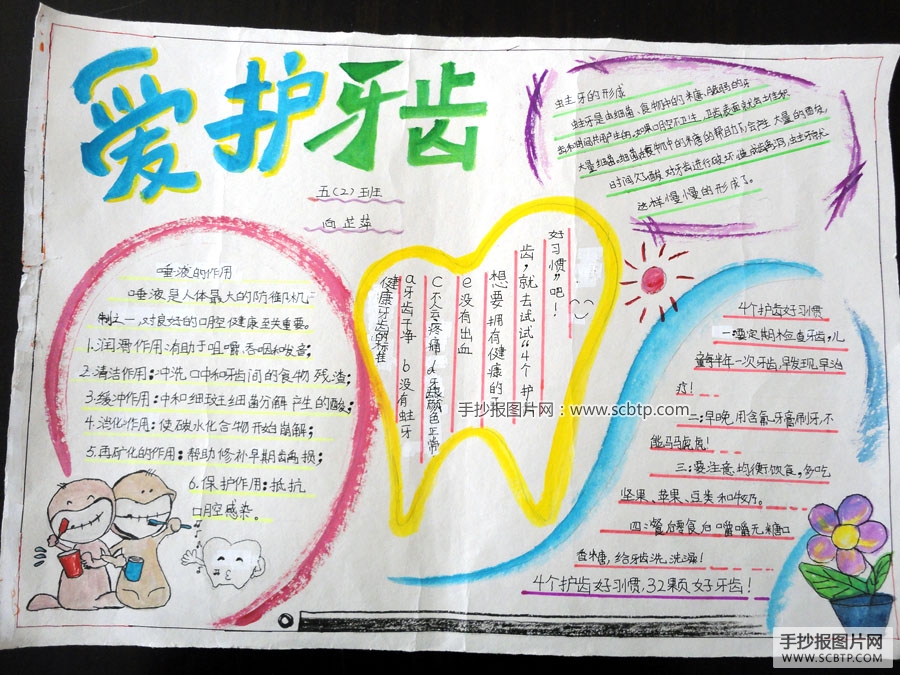 爱护牙齿
五(2)班
芷萍
虫主牙的形成
蛀牙是由细菌、食物中的米唐、脆弱的牙
齿和时间共同产生的。如果口腔不卫生,牙齿表面就会土住积
大量细菌。细菌在食物中的米唐的帮助下,会产生大量的酸。
时间久了,酸对牙齿进行破坏,造成龋洞,虫主牙就
这样慢慢的形成了。
唾液的作用
唾液是人体最大的防御机
制之一,对良好的口腔健康至关重要。
1.润滑作用:有助于咀嚼、吞咽和发音;
2.清洁作用:冲洗口中和牙齿间的食物残渣;
3.缓冲作用:中和细致王细菌分解产生的酸;
4.消化作用:使碳水化合物开始崩解;
5.再矿化的作用:帮助修补早期齿禹损;
6.保护作用:抵抗
口腔感染。
好习惯”吧!
齿,就去试试“4个护
想要拥有健康的
e没有出血
C不会疼痛 d牙龈颜色正常
a牙齿干净 b没有蛀牙
健康牙齿的标准
4个护齿好习惯
一:要定期检查牙齿,儿
童每半年一次牙齿,早发现,早治
疗!
二:早晚用含氟牙膏刷牙,不
能马马虎虎!
三:要注意均衡饮食,多吃
坚果、苹果、豆类和牛奶。
四:餐后零食后嚼嚼无糖口
香糖,给牙齿洗洗澡!
4个护齿好习惯,32颗好牙齿!
手抄报图片网:www.scbtp.com
手抄报图片网
WWW.SCBTP.COM